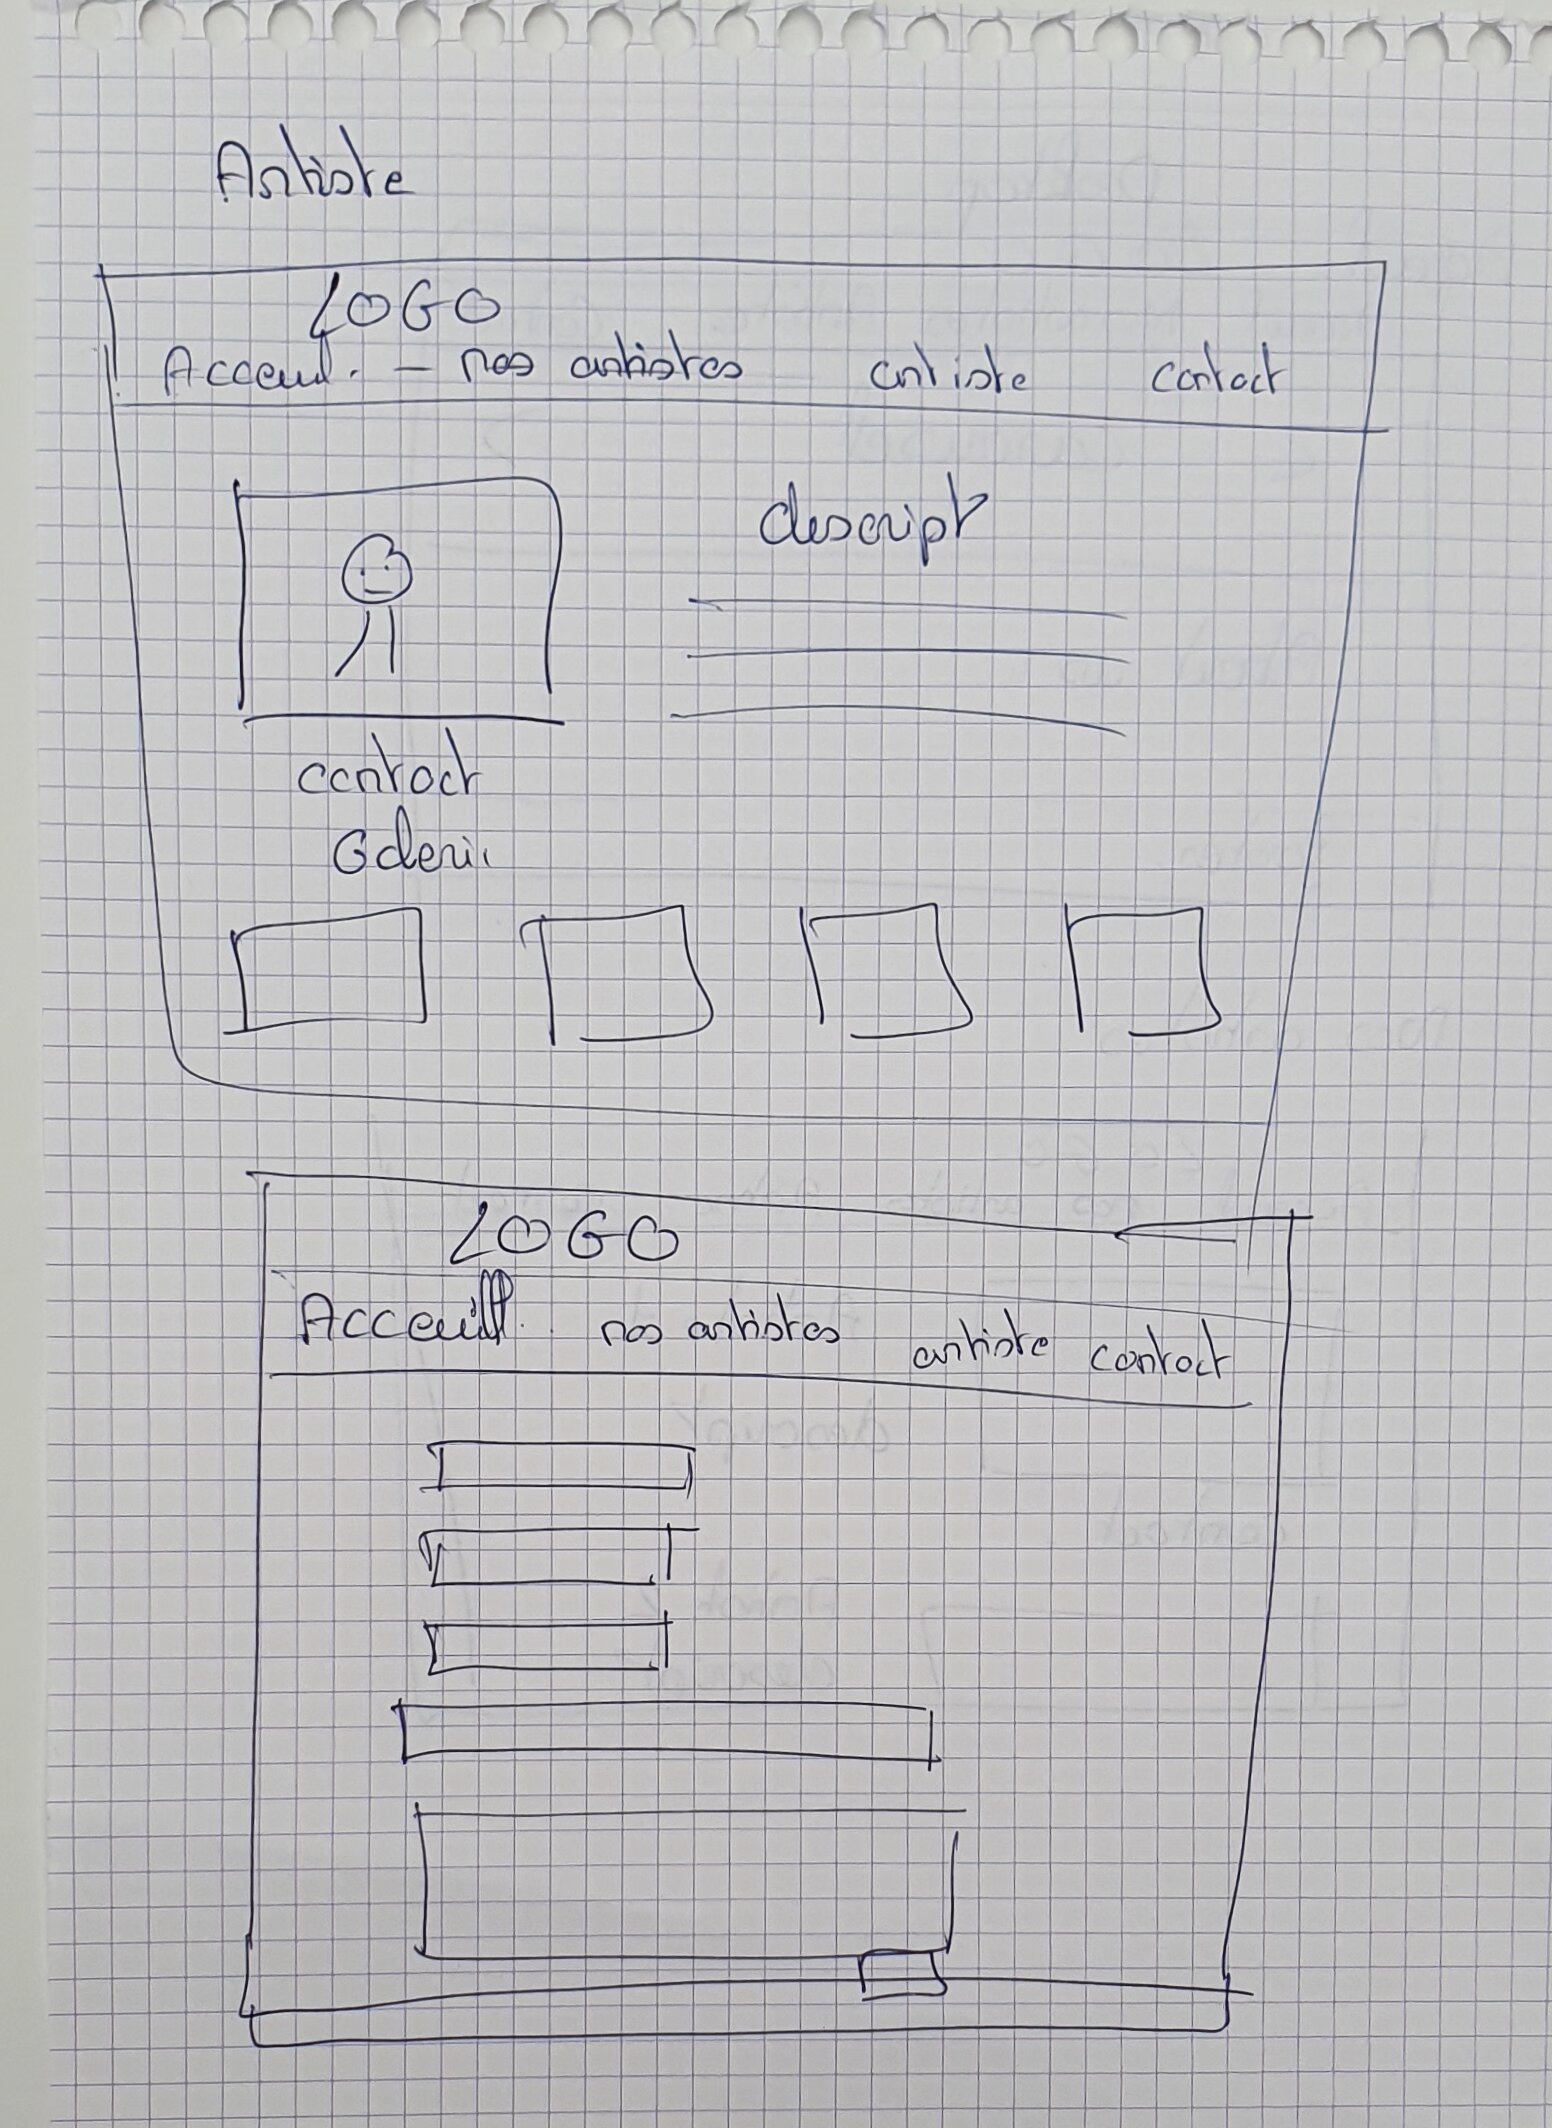 Artiste
LOGO
Acceuil. - nos artistes artiste contact
descript
contact
Galerie
LOGO
Acceuil nos artistes artiste contact